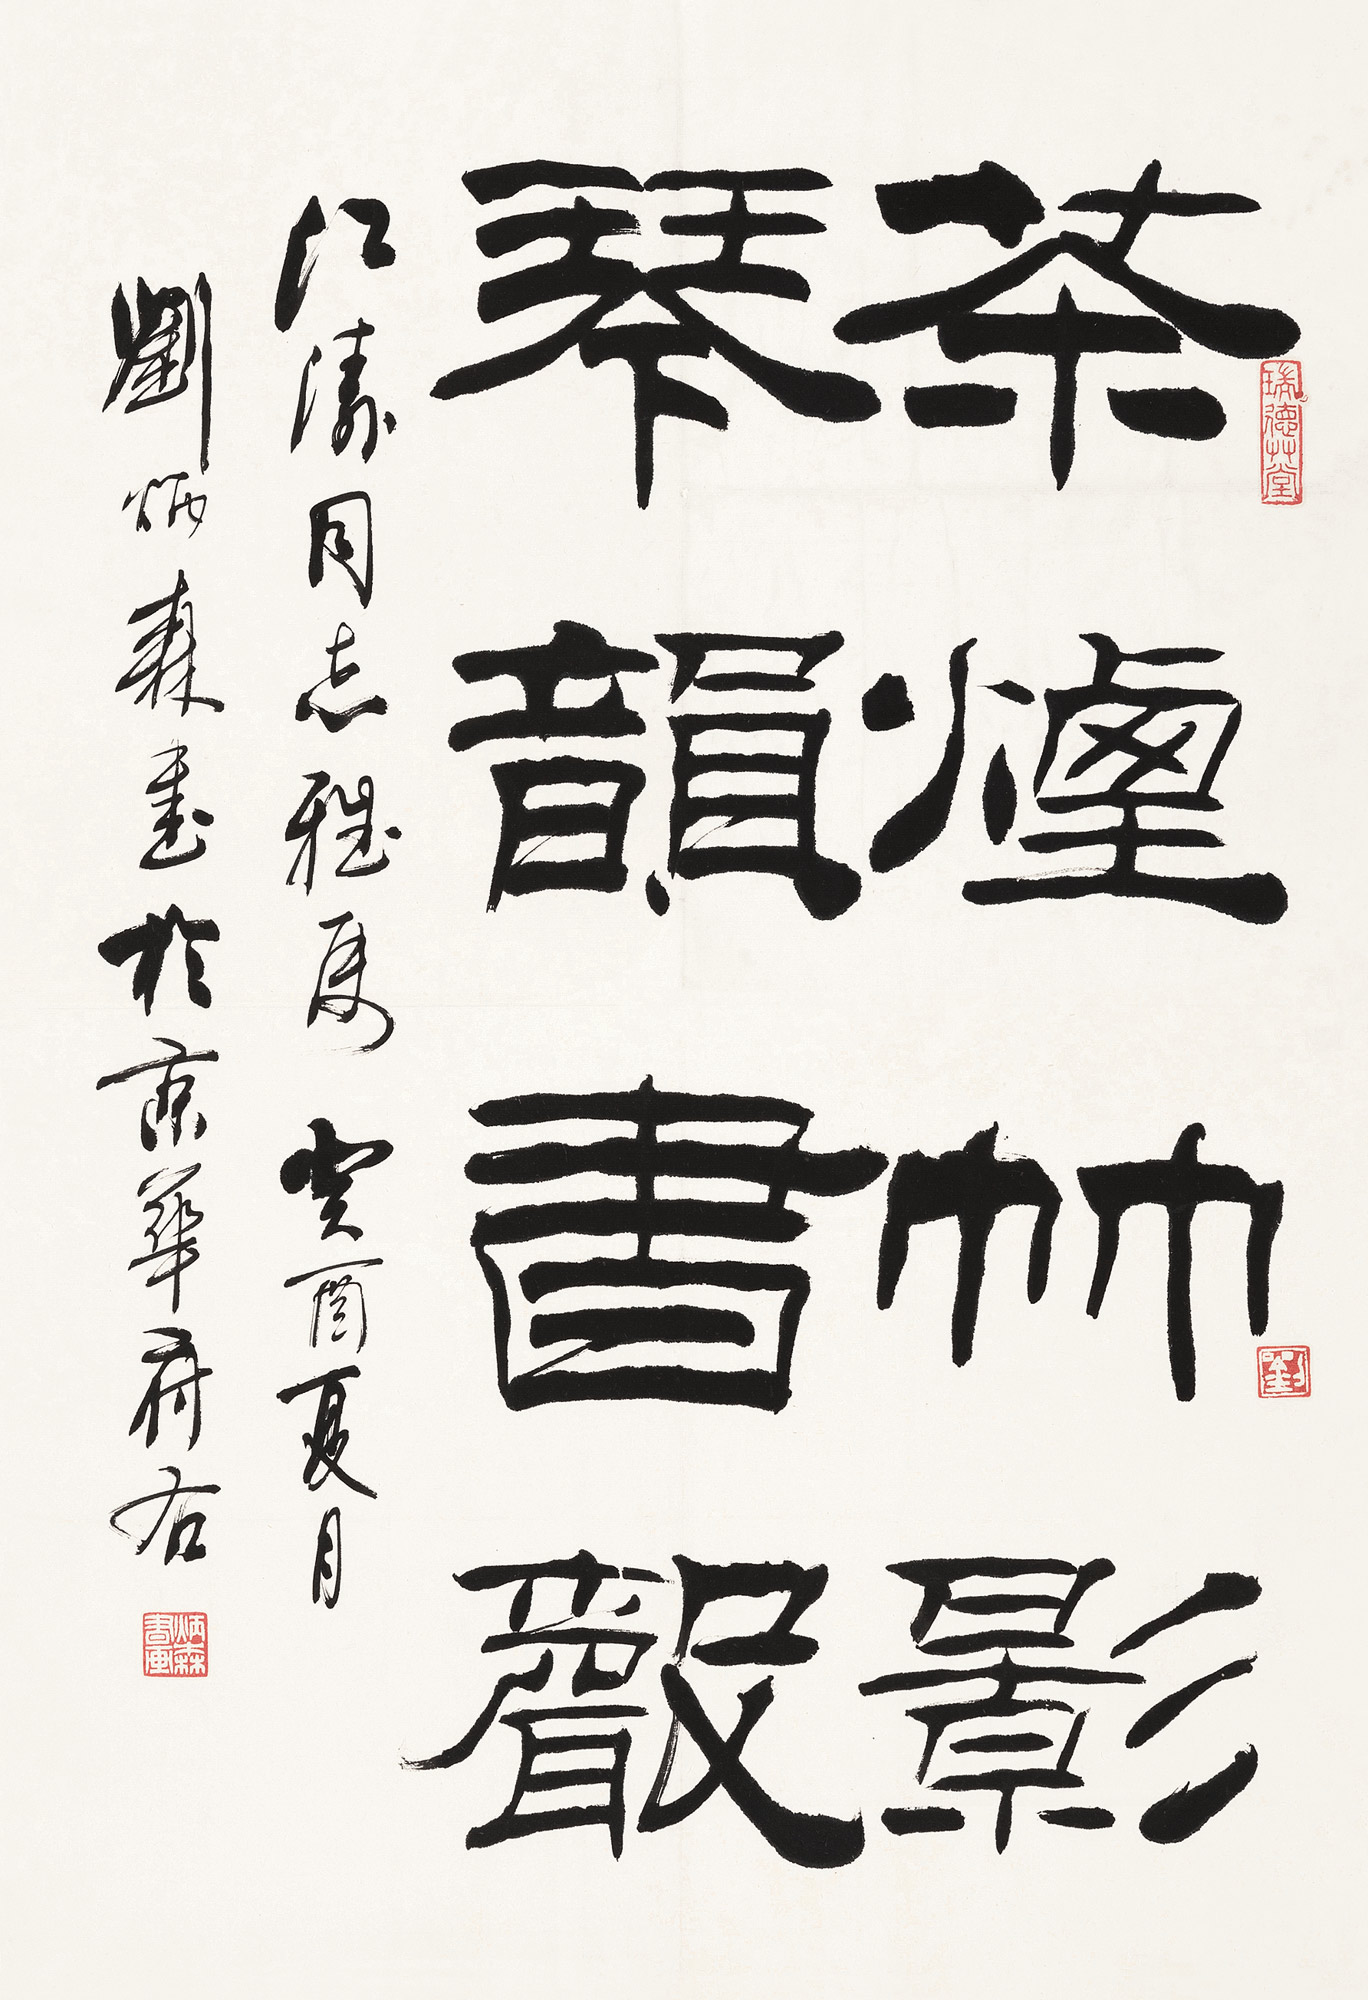 茶煙竹影
琴韻書聲
江濤同志雅屬 癸酉夏月
劉炳森書於京華府右
瑞德草堂
劉
炳森書画